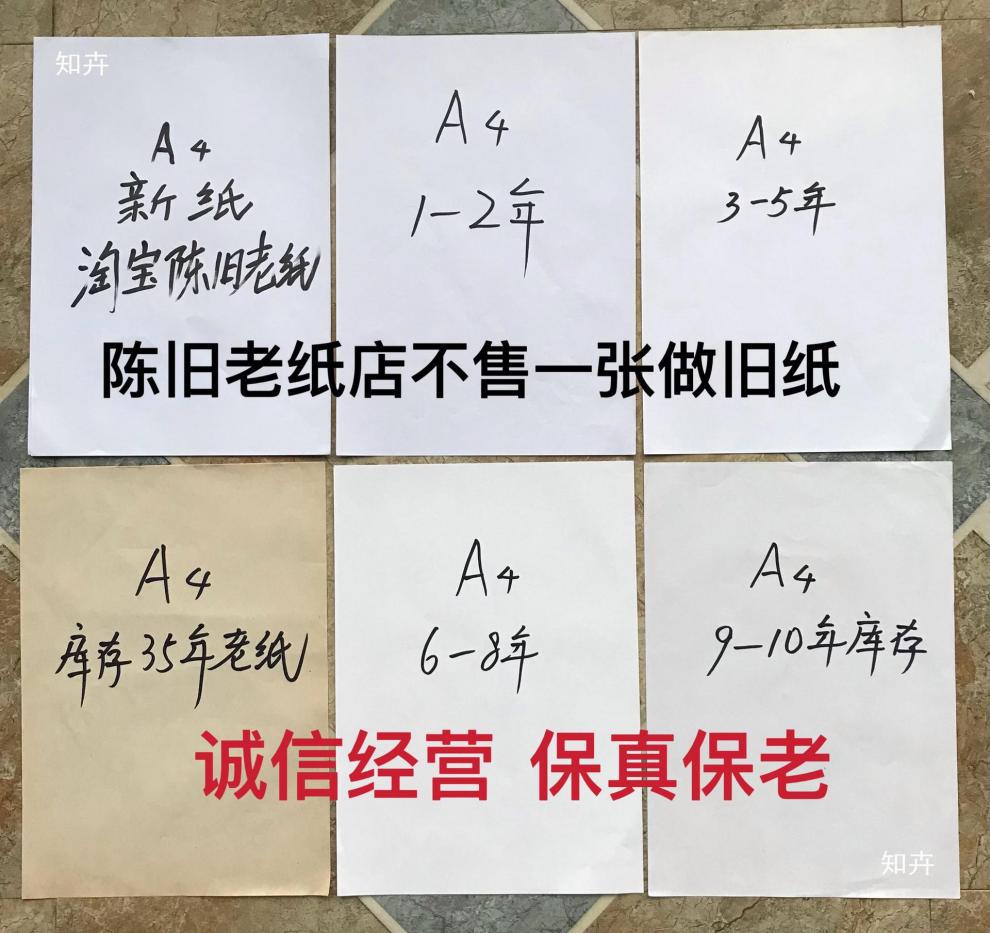 知卉
A4
新纸
淘宝陈旧老纸
A4
1-2年
A4
3-5年
陈旧老纸店不售一张做旧纸
A4
库存35年老纸
A4
6-8年
A4
9-10年库存
诚信经营 保真保老
知卉